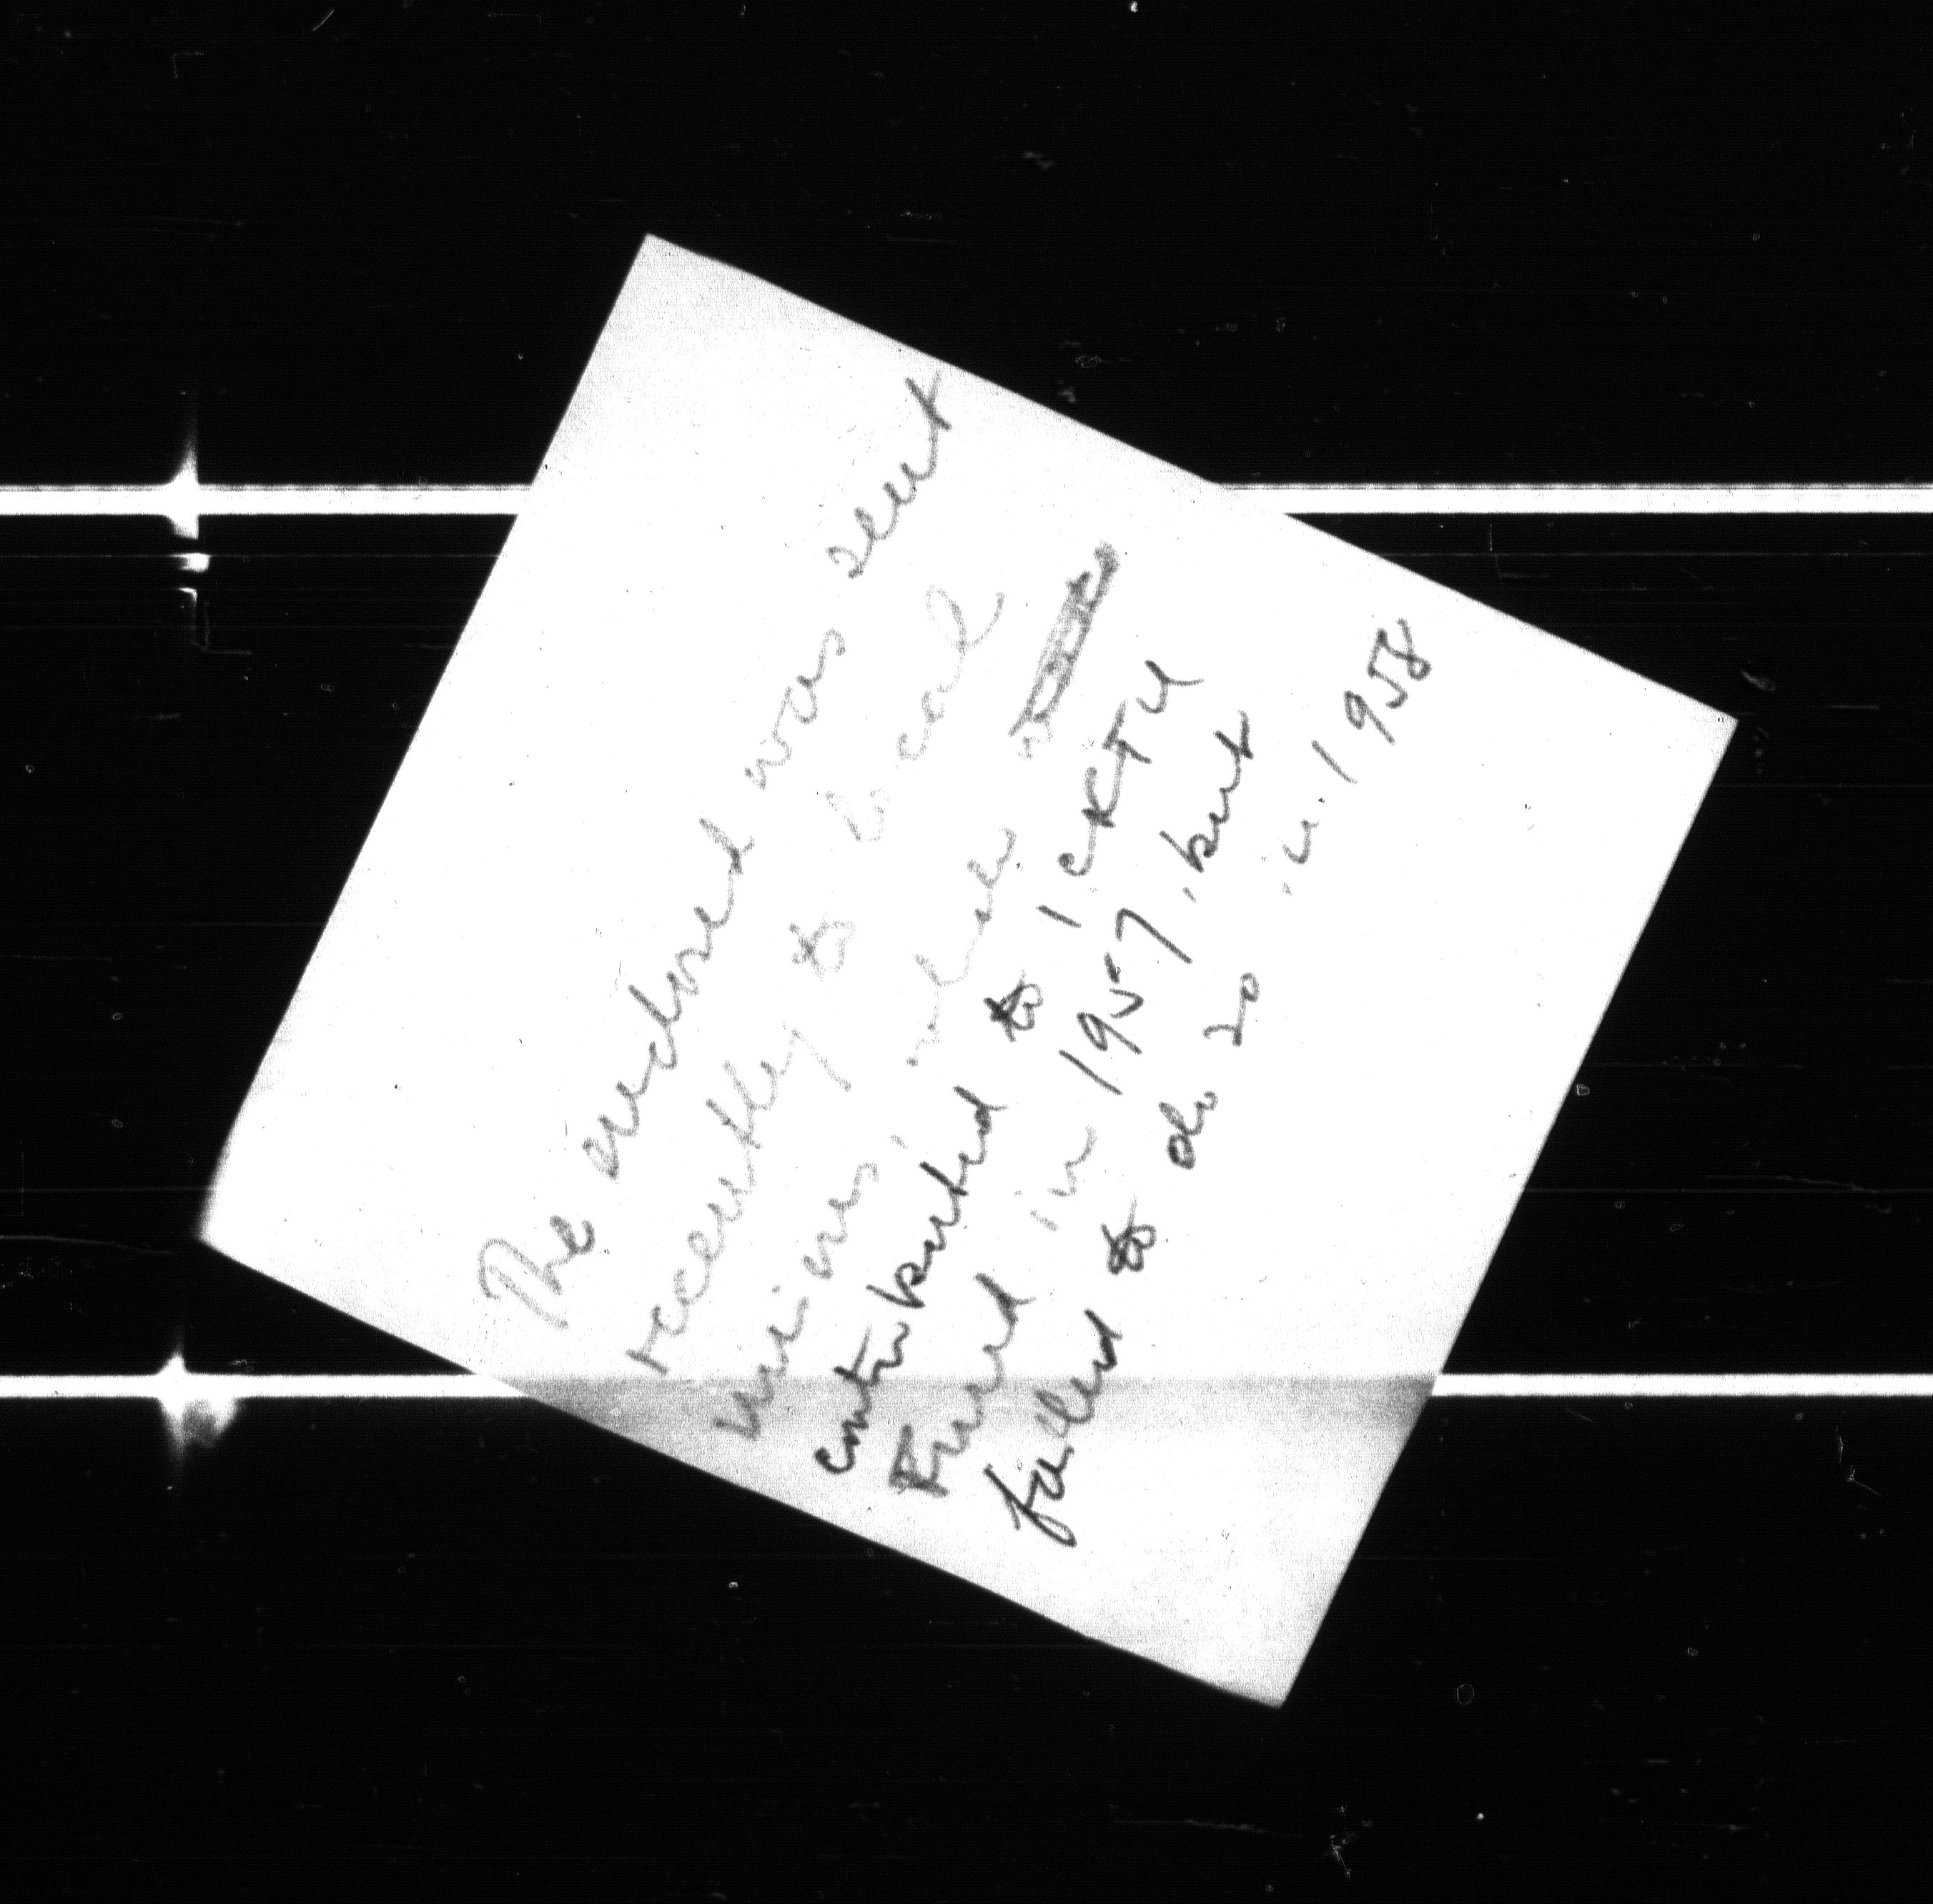 The enclosed was sent
recently to local
unions, which
contributed to ICFTU
Fund in 1957, but
failed to do so in 1958